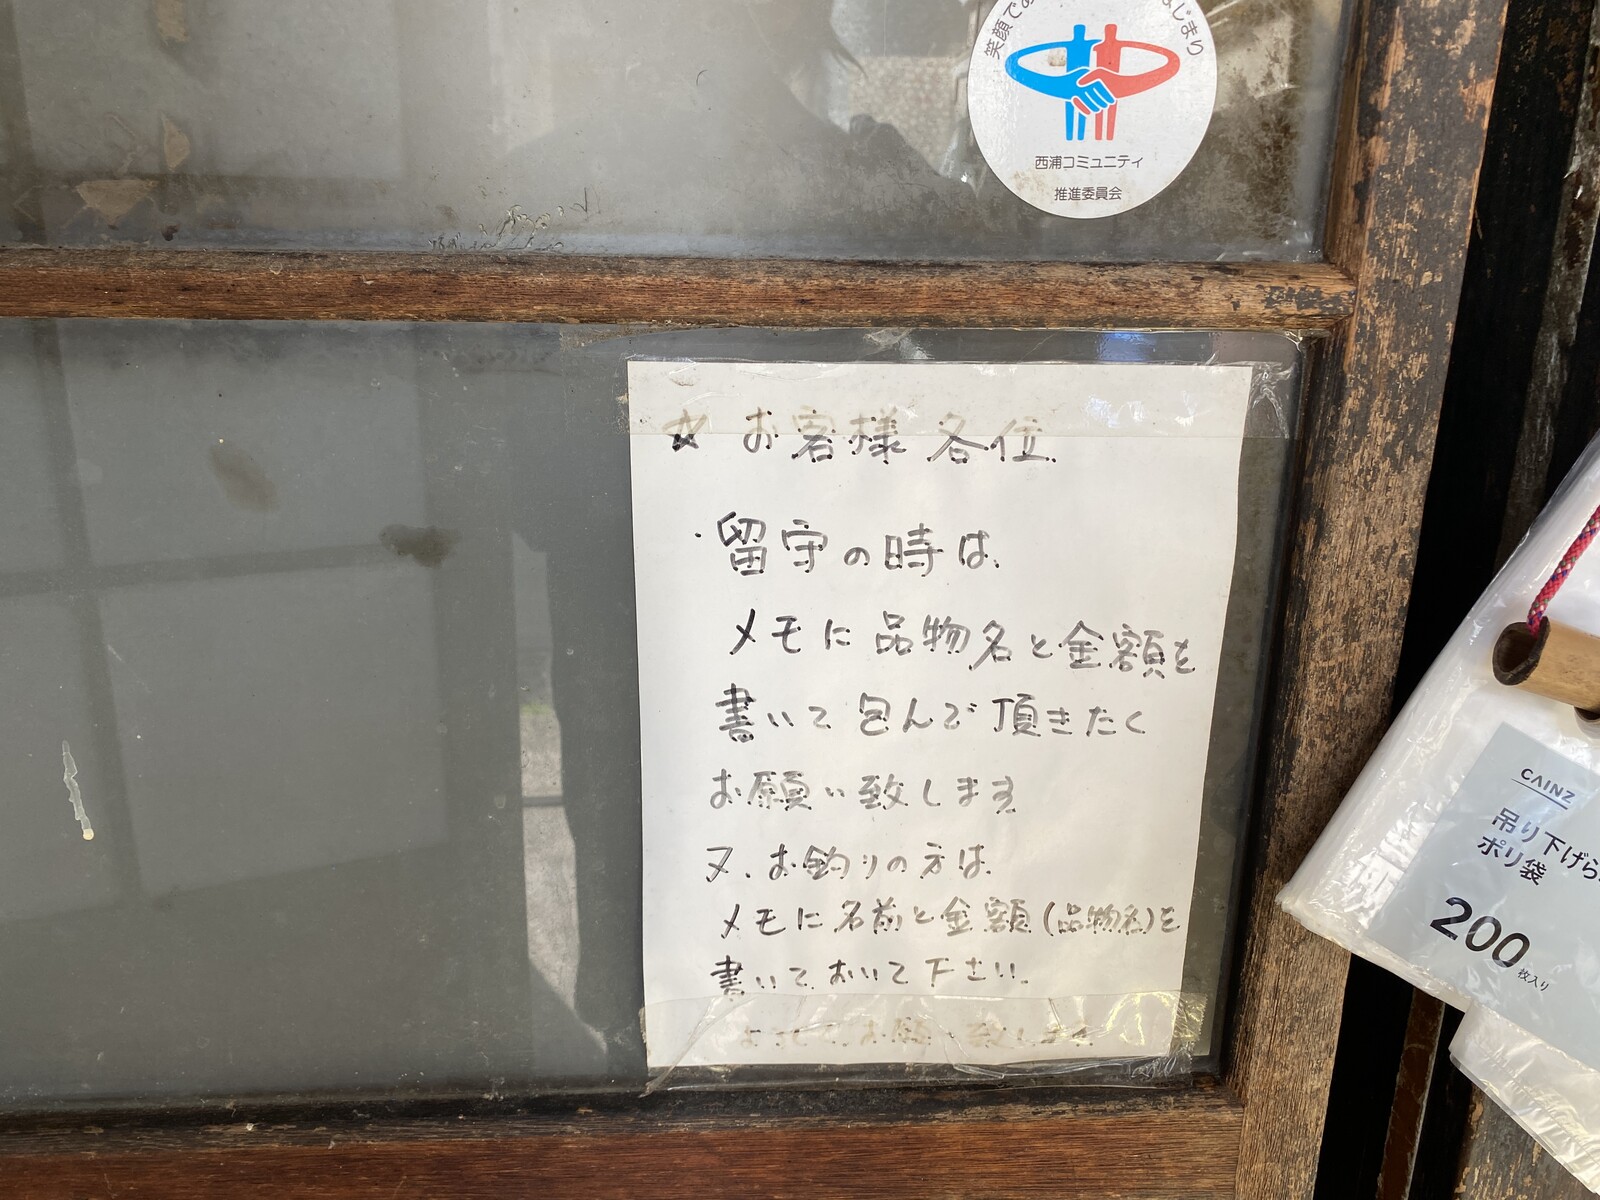 笑顔で
じまり
西浦コミュニティ
推進委員会
☆ お客様各位
・留守の時は
メモに品物名と金額を
書いて包んで頂きたく
お願い致します
又、お釣りの方は、
メモに名前と金額(品物名)を
書いておいて下さい。
お願い致します
CAINZ
吊り下げら
ポリ袋
200
枚入り